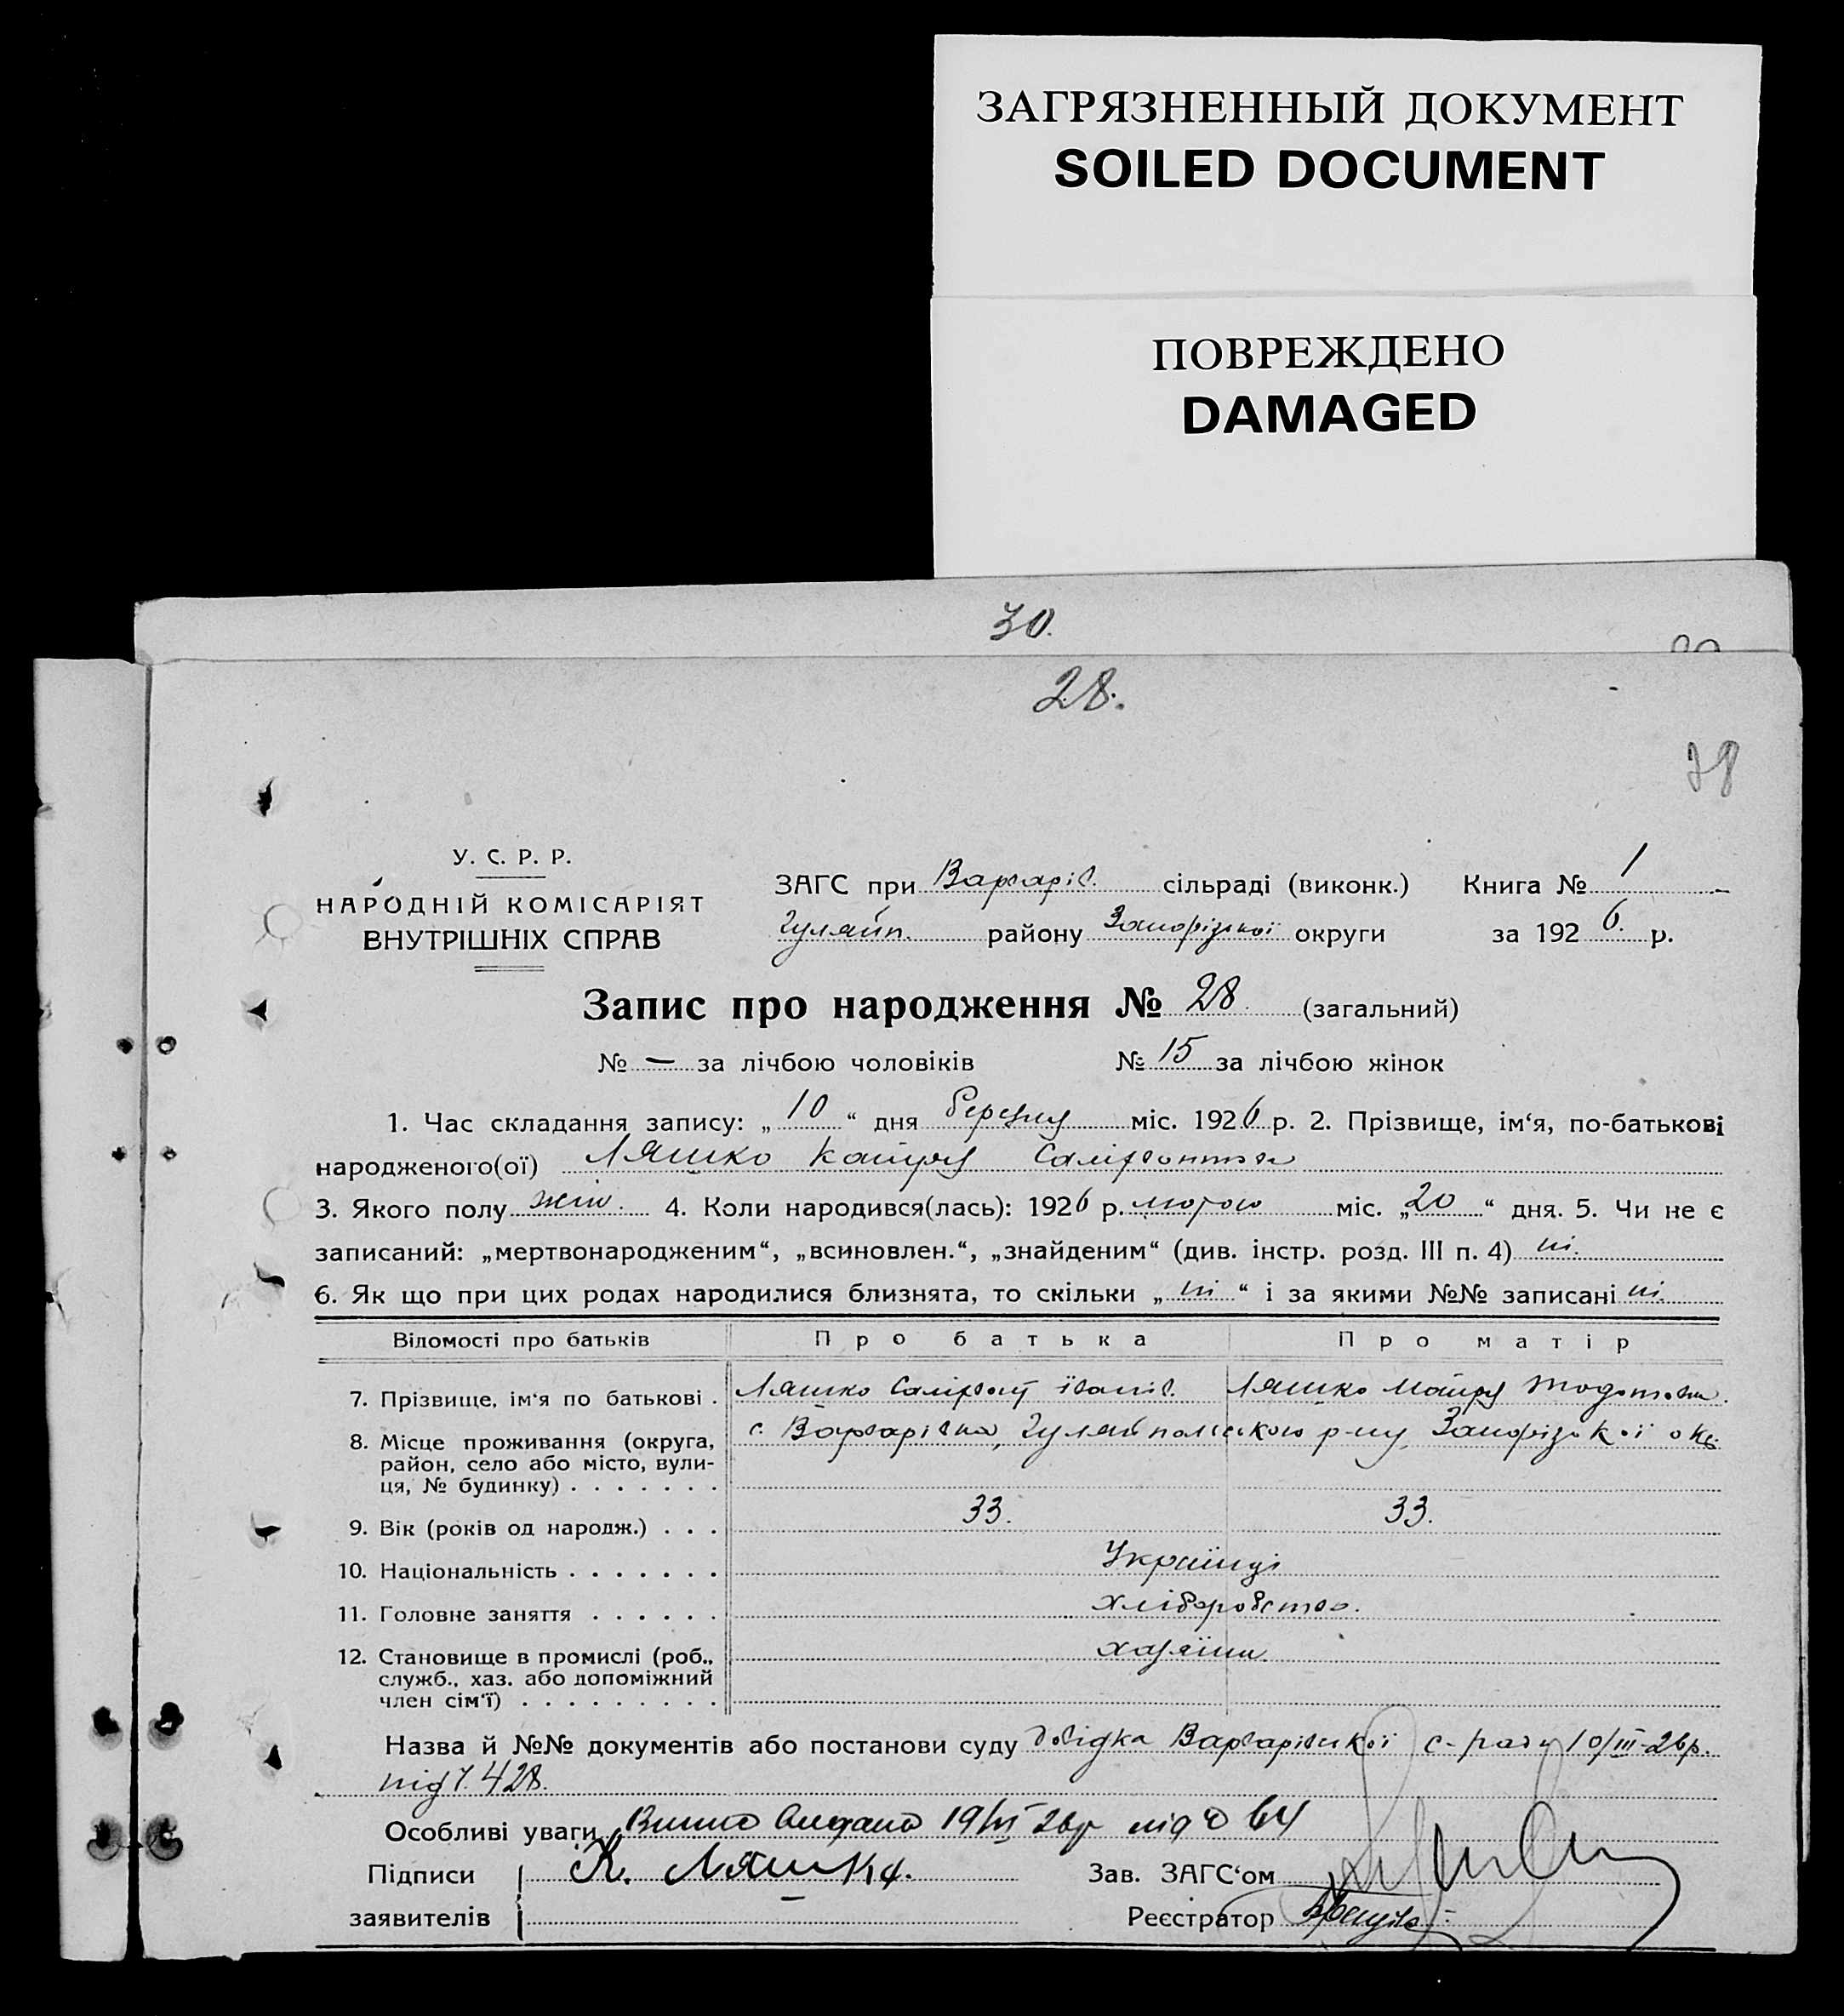 ЗАГРЯЗНЕННЫЙ ДОКУМЕНТ
SOILED DOCUMENT
ПОВРЕЖДЕНО
DAMAGED
30.
28.
28
У. С. Р. Р.
НАРОДНІЙ КОМІСАРІЯТ
ВНУТРІШНІХ СПРАВ
ЗАГС при Варварів. сільраді (виконк.) Книга № 1
Гуляйп. району Запорізької округи за 1926. р.
Запис про народження № 28. (загальний)
№ — за лічбою чоловіків № 15 за лічбою жінок
1. Час складання запису: „10“ дня березня міс. 1926 р. 2. Прізвище, ім‘я, по-батькові
народженого(ої) Ляшко Катря
3. Якого полу жін. 4. Коли народився(лась): 1926 р. лютого міс. „20“ дня. 5. Чи не є
записаний: „мертвонародженим“, „всиновлен.“, „знайденим“ (див. інстр. розд. III п. 4) ні.
6. Як що при цих родах народилися близнята, то скільки „ні“ і за якими №№ записані ні.
Відомості про батьків Про батька Про матір
7. Прізвище, ім‘я по батькові . Ляшко Іванів. Ляшко
8. Місце проживання (округа, район, село або місто, вулиця, № будинку) . . . . . . . с. Варварівка, Гуляйпольського р-ну, Запорізької окр.
9. Вік (років од народж.) . . . 33. 33.
10. Національність . . . . . . . Українці
11. Головне заняття . . . . . . хліборобство.
12. Становище в промислі (роб., служб., хаз. або допоміжний член сім‘ї) . . . . . . . . . хазяїни.
Назва й №№ документів або постанови суду довідка Варварівської с-ради 10/III-26р.
під Ч. 428.
Особливі уваги 19/III 26р під № 64
Підписи К. Ляшко. Зав. ЗАГС‘ом
заявителів Реєстратор